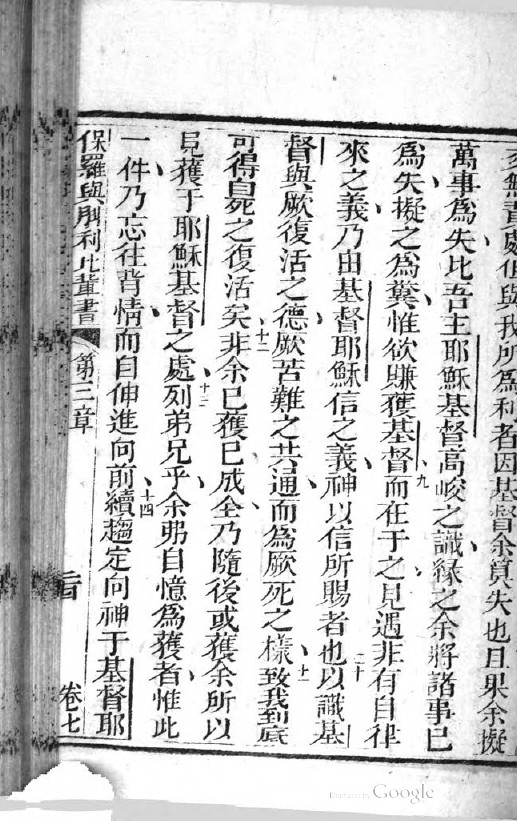 無責處但與我所為利者因基督余算失也且果余擬
萬事為失比吾主耶穌基督高峻之識緣之余將諸事已
為失擬之為糞惟欲賺獲基督而在于之見遇非有自律
九
來之義乃由基督耶穌信之義神以信所賜者也以識基
十
督與厥復活之德厥苦難之共通而為厥死之樣致我到底
十一
可得自死之復活矣非余已獲已成全乃隨後或獲余所以
十二
見獲于耶穌基督之處列弟兄乎余弗自憶為獲者惟此
十三
一件乃忘往背情而自伸進向前續趨定向神于基督耶
十四
保羅與腓利比輩書 第三章 卷七
Digitized by Google